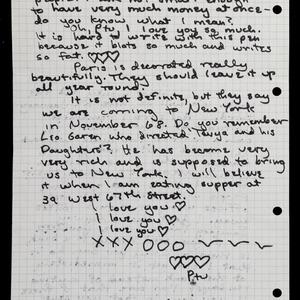 to have very much money at once-
do you know what I mean?
Oh, Ptu I love you so much.
It is hard to write with this pen
because it blots so much and writes
so fat. ♡♡♡
Paris is decorated really
beautifully. They should leave it up
all year round.
It is not definite, but they say
we are coming to New York
in November 68. Do you remember
Leo Garen who directed Tevya and his
Daughters? He has become very
very rich and is supposed to bring
us to New York. I will believe
it when I am eating supper at
39 West 67th street.
I love you ♡
I love you ♡
I love you ♡
XXX OOO
♡♡♡
Ptu